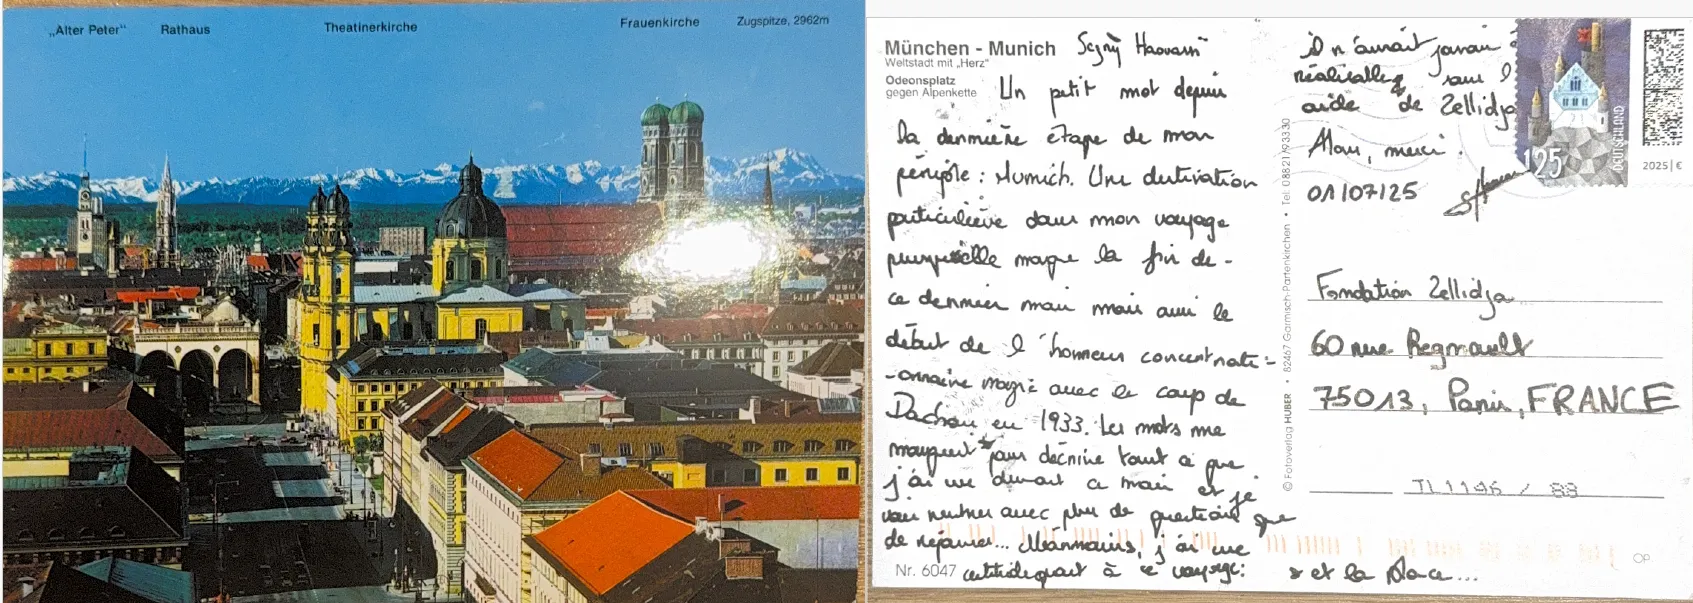 „Alter Peter“
Rathaus
Theatinerkirche
Frauenkirche
Zugspitze, 2962m
München - Munich
Weltstadt mit „Herz“
Odeonsplatz
gegen Alpenkette
Un petit mot depuis
la dernière étape de mon
périple : Munich. Une destination
particulière dans mon voyage
puisqu'elle marque la fin de-
ce dernier mais mais aussi le
début de l'horreur concentrati-
-onnaire nazie avec le camp de
Dachau en 1933. Les mots me
manquent pour décrire tout ce que
j'ai vu durant ce mois et je
vais rentrer avec plus de questions que
de réponses... Néanmoins, j'ai une
certitude quant à ce voyage:
il n'aurait jamais
réalisable sans l
aide de Zellidja
Alors, merci !
01/07/25
* et la place...
Fondation Zellidja
60 rue Regnault
75013, Paris, FRANCE
JL1146 / 88
© Fotoverlag HUBER • 82467 Garmisch-Partenkirchen • Tel. 08821/93330
Nr. 6047
OP
DEUTSCHLAND
125
2025 | €